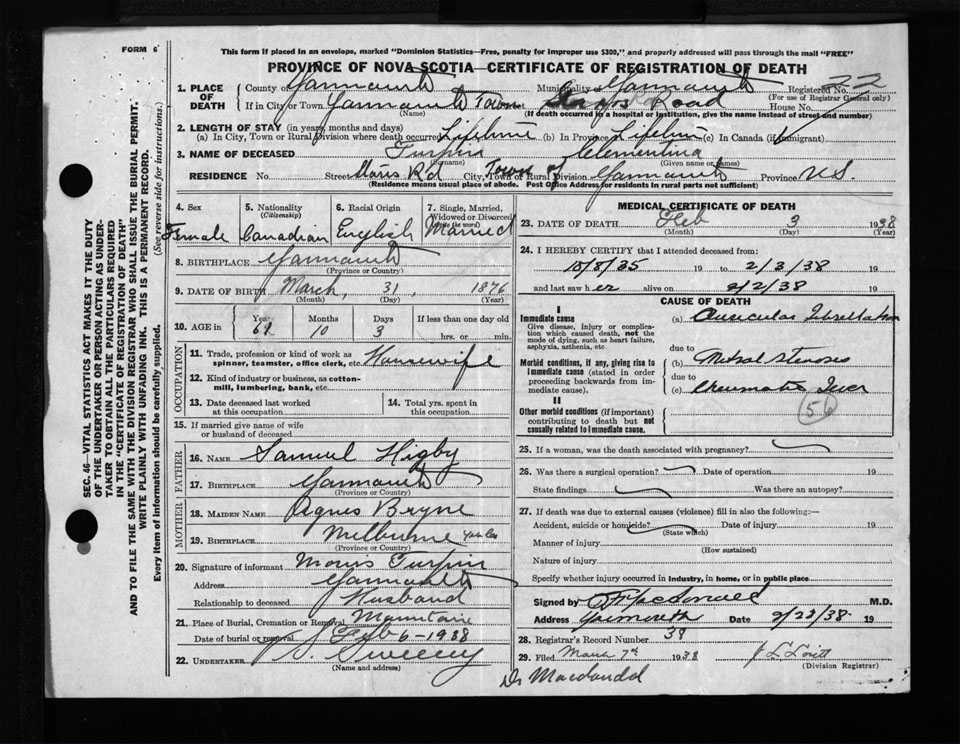 FORM 6
This form if placed in an envelope, marked "Dominion Statistics—Free, penalty for improper use $300," and properly addressed will pass through the mail "FREE"
PROVINCE OF NOVA SCOTIA—CERTIFICATE OF REGISTRATION OF DEATH
1. PLACE OF DEATH
County of Yarmouth Municipality of Yarmouth Registered No.
(For use of Registrar General only)
If in City or Town Yarmouth Town Road House No.
(Name) (If death occurred in a hospital or institution, give the name instead of street and number)
2. LENGTH OF STAY (in years, months and days)
(a) In City, Town or Rural Division where death occurred Lifetime (b) In Province Lifetime (c) In Canada (if immigrant)
3. NAME OF DECEASED Turpin Clementina
(Surname) (Given name or names)
RESIDENCE No. Street Rd City, Town or Rural Division Yarmouth Province N.S.
(Residence means usual place of abode. Post Office Address for residents in rural parts not sufficient)
4. Sex Female
5. Nationality (Citizenship) Canadian
6. Racial Origin English
7. Single, Married, Widowed or Divorced (write the word) Married
8. BIRTHPLACE Yarmouth
(Province or Country)
9. DATE OF BIRTH March, 31, 1876
(Month) (Day) (Year)
10. AGE in Years 61 Months 10 Days 3 If less than one day old
hrs. or min.
OCCUPATION
11. Trade, profession or kind of work as spinner, teamster, office clerk, etc. Housewife
12. Kind of industry or business, as cotton-mill, lumbering, bank, etc.
13. Date deceased last worked at this occupation
14. Total yrs. spent in this occupation
15. If married give name of wife or husband of deceased
FATHER
16. NAME Samuel Higby
17. BIRTHPLACE Yarmouth
(Province or Country)
MOTHER
18. MAIDEN NAME Agnes Bryne
19. BIRTHPLACE Melbourne
(Province or Country)
20. Signature of informant Morris Turpin
Address Yarmouth
Relationship to deceased Husband
21. Place of Burial, Cremation or Removal Mountain
Date of burial or removal Feb 6-1938
22. UNDERTAKER Sweeny
(Name and address)
MEDICAL CERTIFICATE OF DEATH
23. DATE OF DEATH Feb 3 1938
(Month) (Day) (Year)
24. I HEREBY CERTIFY that I attended deceased from:
10/8/35 19 to 2/3/38 19
and last saw her alive on 2/2/38 19
CAUSE OF DEATH
I
Immediate cause
Give disease, injury or complication which caused death, not the mode of dying, such as heart failure, asphyxia, asthenia, etc.
(a) Auricular fibrillation
due to
Morbid conditions, if any, giving rise to immediate cause (stated in order proceeding backwards from immediate cause).
(b) Mitral Stenosis
due to
(c) Rheumatic fever
56
II
Other morbid conditions (if important) contributing to death but not causally related to immediate cause.
25. If a woman, was the death associated with pregnancy?
26. Was there a surgical operation? Date of operation 19
State findings Was there an autopsy?
27. If death was due to external causes (violence) fill in also the following:—
Accident, suicide or homicide? Date of injury 19
(State which)
Manner of injury
(How sustained)
Nature of injury
Specify whether injury occurred in industry, in home, or in public place
Signed by Macdonald M.D.
Address Yarmouth Date 2/23/38 19
28. Registrar's Record Number 39
29. Filed March 7th 1938
(Division Registrar)
Dr Macdonald
SEC. 46—VITAL STATISTICS ACT MAKES IT THE DUTY OF THE UNDERTAKER OR PERSON ACTING AS UNDERTAKER TO OBTAIN ALL THE PARTICULARS REQUIRED IN THE "CERTIFICATE OF REGISTRATION OF DEATH"
AND TO FILE THE SAME WITH THE DIVISION REGISTRAR WHO SHALL ISSUE THE BURIAL PERMIT.
WRITE PLAINLY WITH UNFADING INK. THIS IS A PERMANENT RECORD.
Every item of information should be carefully supplied. (See reverse side for instructions.)